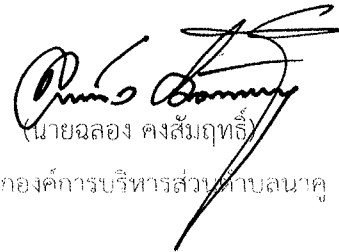 (นายฉลอง คงสัมฤทธิ์)
กองค์การบริหารส่วนตำบลนาคู